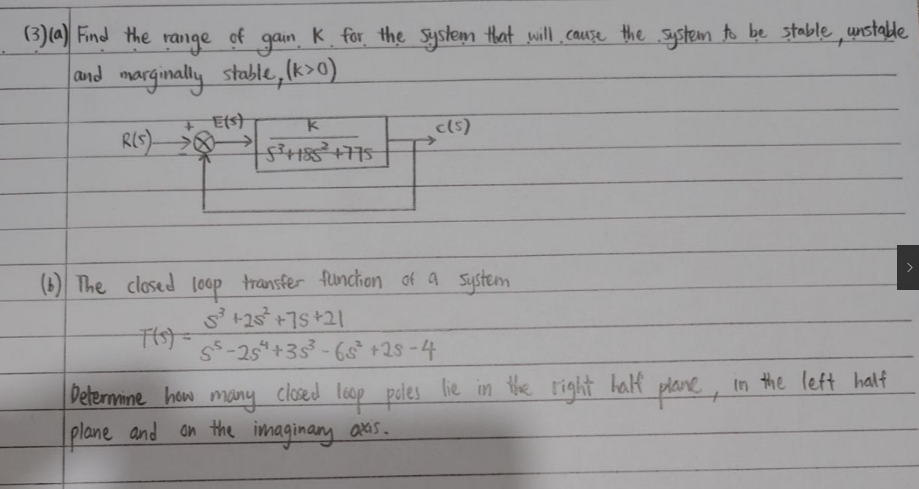 (3)(a) Find the range of gain K for the system that will cause the system to be stable, unstable
and marginally stable, (k>0)
R(s) + - E(s) K / s³+18s²+77s c(s)
(b) The closed loop transfer function of a system
T(s) = s³+2s²+7s+21 / s⁵-2s⁴+3s³-6s²+2s-4
Determine how many closed loop poles lie in the right half plane, in the left half
plane and on the imaginary axis.